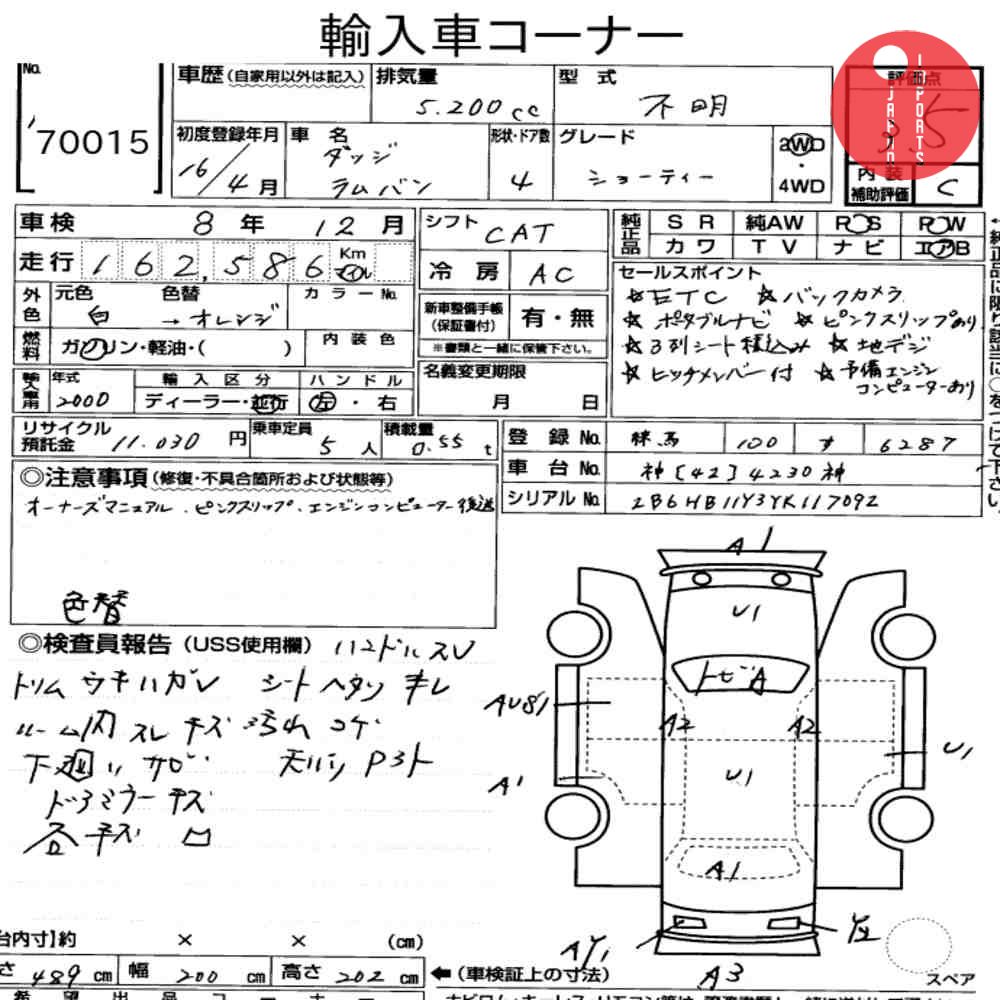 輸入車コーナー
No.
70015
車歴(自家用以外は記入)
排気量
5.200cc
型式
不明
評価点
3.5
JAPAN IMPORTS
初度登録年月
16/4月
車名
ダッジ
ラムバン
形状・ドア数
4
グレード
ショーティー
2WD
・
4WD
内装
補助評価
C
車検 8年 12月
シフト CAT
純正品
SR 純AW PS PW
カワ TV ナビ エアB
走行 162,586 Km マイル
冷房 AC
外色 元色 白 色替 → オレンジ カラーNo.
新車整備手帳
(保証書付)
有・無
※書類と一緒に保管下さい。
セールスポイント
☆ETC ☆バックカメラ
☆ポタブルナビ ☆ピンクスリップあり
☆3列シート積込み ☆地デジ
☆ヒッチメンバー付 ☆予備エンジン
コンピューターあり
燃料 ガソリン・軽油・( ) 内装色
名義変更期限
月 日
年式 2000
輸入区分
ディーラー・並行
ハンドル
左・右
リサイクル
預託金 11.030円
乗車定員 5人
積載量 0.55t
登録No. 練馬 100 す 6287
車台No. 神[42]4230神
シリアルNo. 2B6HB11Y3YK117092
◎注意事項(修復・不具合箇所および状態等)
オーナーズマニュアル.ピンクスリップ.エンジンコンピューター後送
色替
◎検査員報告(USS使用欄) ハンドルスレ
トリムウキハガレ シートヘタリキレ
ルーム内スレキズ汚れコゲ
下廻りサビ
ドアミラーキズ
各キズ凹
A1
U1
トビA
AU81
A2
A2
U1
A1
U1
A1
AY1
A3
Y2
スペア
台内寸】約 × × (cm)
さ 489cm 幅 200cm 高さ 202cm
←(車検証上の寸法)